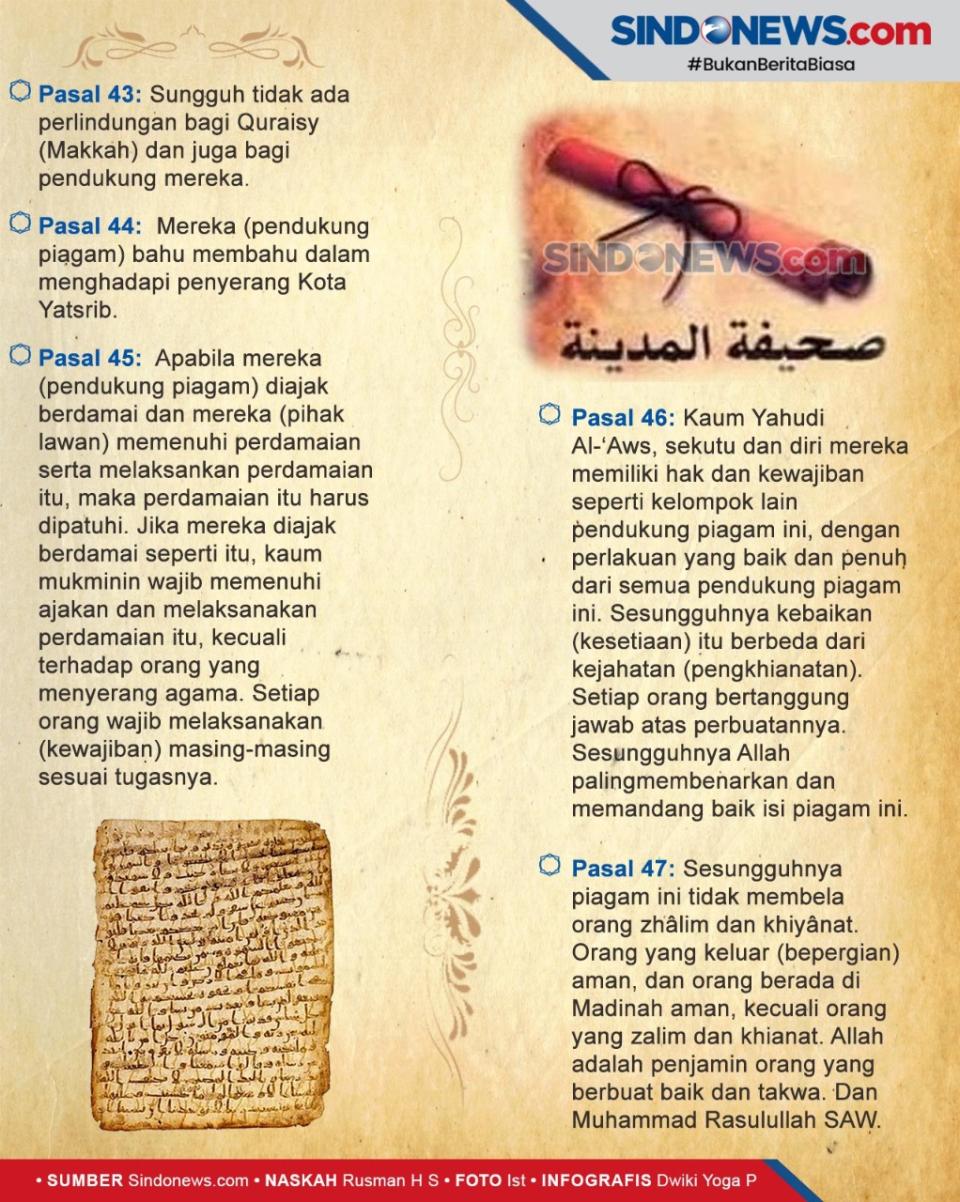 SINDONEWS.com
#BukanBeritaBiasa
Pasal 43: Sungguh tidak ada
perlindungan bagi Quraisy
(Makkah) dan juga bagi
pendukung mereka.
Pasal 44: Mereka (pendukung
piagam) bahu membahu dalam
menghadapi penyerang Kota
Yatsrib.
Pasal 45: Apabila mereka
(pendukung piagam) diajak
berdamai dan mereka (pihak
lawan) memenuhi perdamaian
serta melaksankan perdamaian
itu, maka perdamaian itu harus
dipatuhi. Jika mereka diajak
berdamai seperti itu, kaum
mukminin wajib memenuhi
ajakan dan melaksanakan
perdamaian itu, kecuali
terhadap orang yang
menyerang agama. Setiap
orang wajib melaksanakan
(kewajiban) masing-masing
sesuai tugasnya.
SINDONEWS.com
صحيفة المدينة
Pasal 46: Kaum Yahudi
Al-‘Aws, sekutu dan diri mereka
memiliki hak dan kewajiban
seperti kelompok lain
pendukung piagam ini, dengan
perlakuan yang baik dan penuh
dari semua pendukung piagam
ini. Sesungguhnya kebaikan
(kesetiaan) itu berbeda dari
kejahatan (pengkhianatan).
Setiap orang bertanggung
jawab atas perbuatannya.
Sesungguhnya Allah
palingmembenarkan dan
memandang baik isi piagam ini.
Pasal 47: Sesungguhnya
piagam ini tidak membela
orang zhâlim dan khiyânat.
Orang yang keluar (bepergian)
aman, dan orang berada di
Madinah aman, kecuali orang
yang zalim dan khianat. Allah
adalah penjamin orang yang
berbuat baik dan takwa. Dan
Muhammad Rasulullah SAW.
• SUMBER Sindonews.com • NASKAH Rusman H S • FOTO Ist • INFOGRAFIS Dwiki Yoga P